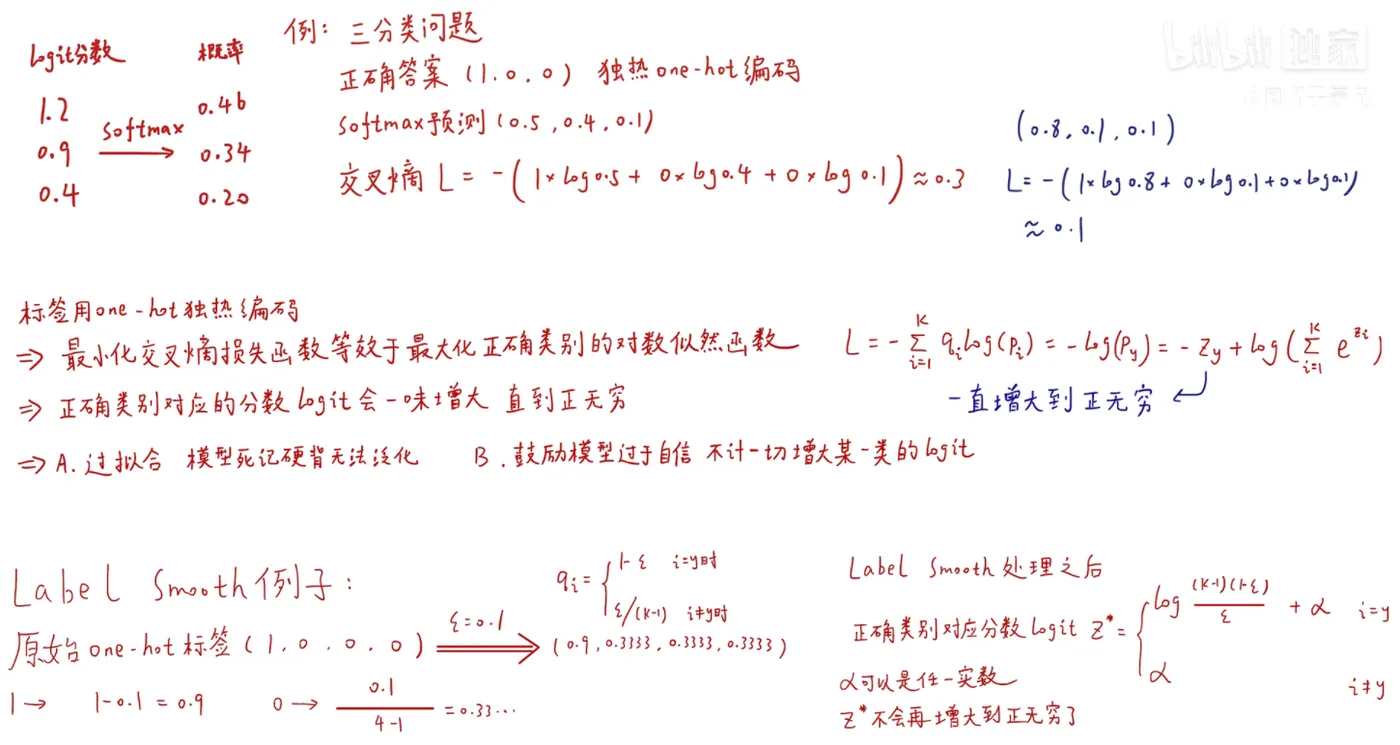 bilibili 独家
例: 三分类问题
logit分数 概率
正确答案 (1,0,0) 独热one-hot编码
1.2 0.46
softmax
0.9 0.34
0.4 0.20
softmax预测(0.5,0.4,0.1)
交叉熵 L = -(1×log0.5 + 0×log0.4 + 0×log0.1) ≈ 0.3
(0.8,0.1,0.1)
L = -(1×log0.8 + 0×log0.1 + 0×log0.1)
≈ 0.1
标签用one-hot独热编码
⇒ 最小化交叉熵损失函数等效于最大化正确类别的对数似然函数
L = -∑_{i=1}^{K} q_i log(p_i) = -log(p_y) = -z_y + log(∑_{i=1}^{K} e^{z_i})
⇒ 正确类别对应的分数logit会一味增大 直到正无穷
一直增大到正无穷
⇒ A.过拟合 模型死记硬背无法泛化 B.鼓励模型过于自信 不计一切增大某一类的logit
Label Smooth例子:
q_i = { 1-ε i=y时
ε/(K-1) i≠y时
原始one-hot标签(1,0,0,0) ε=0.1 ⇒ (0.9,0.3333,0.3333,0.3333)
1→ 1-0.1=0.9 0→ 0.1/(4-1) =0.33...
Label Smooth处理之后
正确类别对应分数logit Z* = { log (K-1)(1-ε)/ε + α i=y
α i≠y
α可以是任一实数
Z*不会再增大到正无穷了